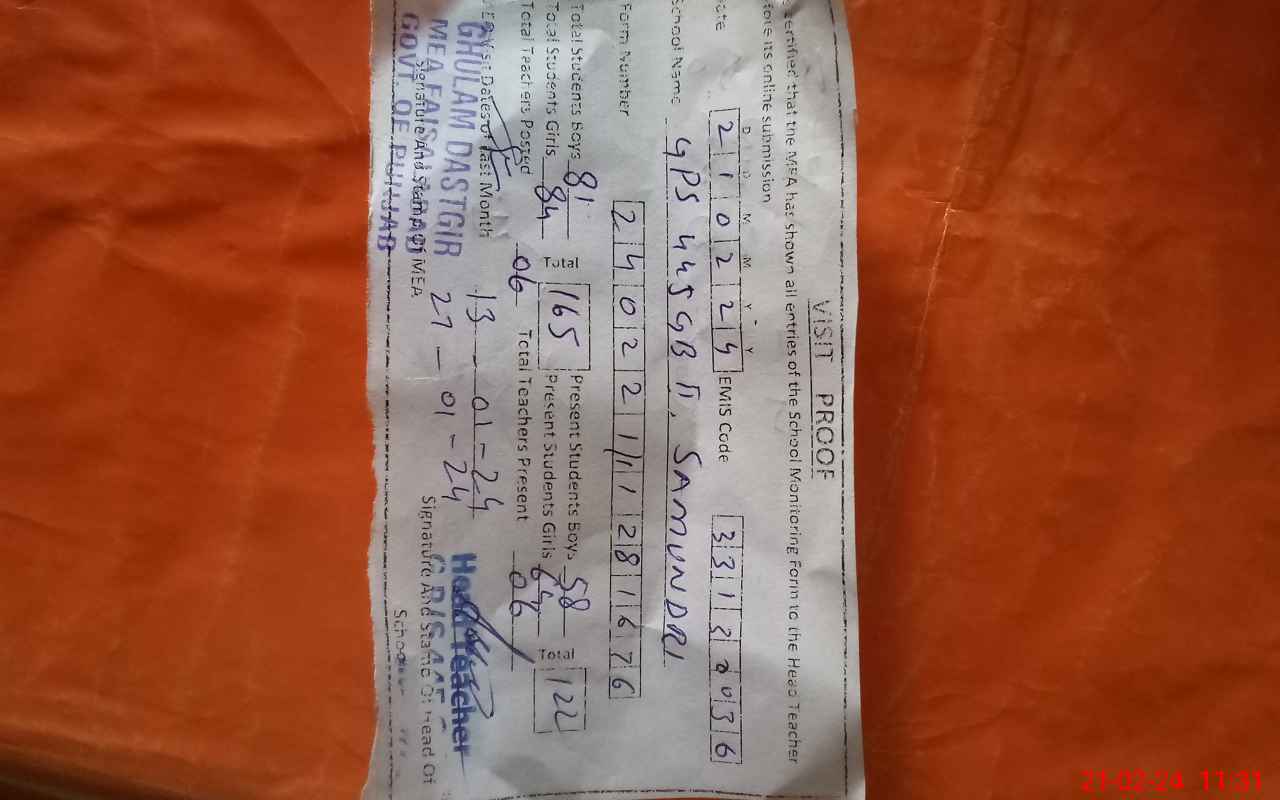 VISIT PROOF
certified that the MEA has shown all entries of the School Monitoring Form to the Head Teacher
fore its online submission
D D M M Y Y
ate 2 1 0 2 2 4 EMIS Code 3 3 1 3 2 0 3 6
School Name GPS 445 GB II, SAMUNDRI
Form Number 2 4 0 2 2 1 1 1 1 2 8 1 6 7 6
Total Students Boys 81 Total 165 Present Students Boys 58 Total 122
Total Students Girls 84 Present Students Girls 64
Total Teachers Posted 06 Total Teachers Present 06
Visit Dates of Last Month 13 - 01 - 24
27 - 01 - 24
GHULAM DASTGIR
MEA FAISALABAD
GOVT. OF PUNJAB
Signature And Stamp Of MEA
Head Teacher
Signature And Stamp Of Head Of
School
21-02-24 11:31